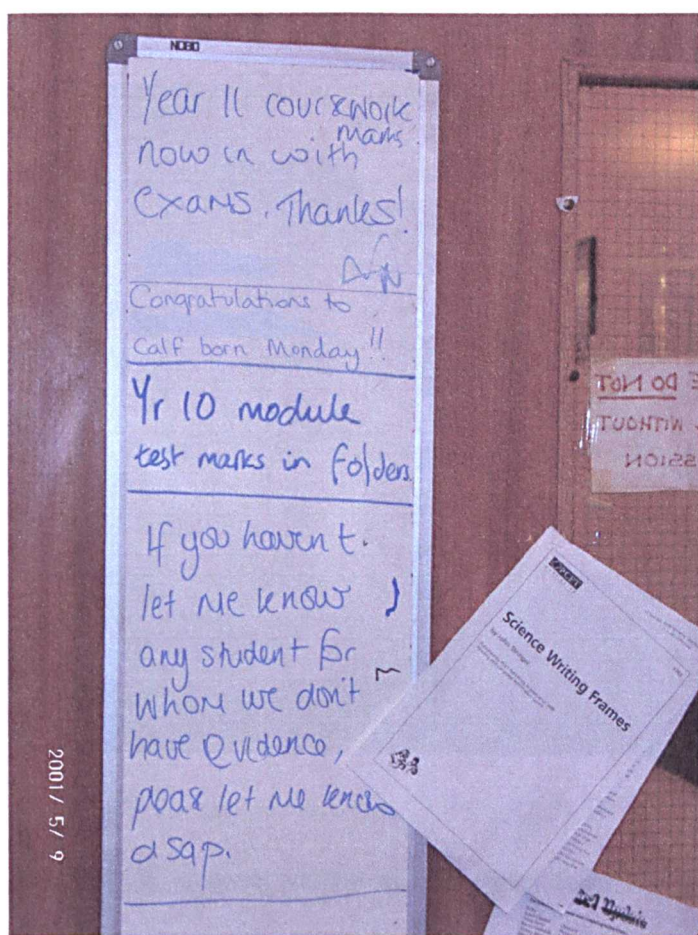 NOBO
Year 11 coursework
marks
now in with
exams. Thanks!
Congratulations to
Calf born Monday!!
Yr 10 module
test marks in folders.
If you haven't.
let me know
any student for
whom we don't
have evidence,
please let me know
asap.
E DO NOT
WITHOUT
SSION
Science Writing Frames
2001/ 5/ 9